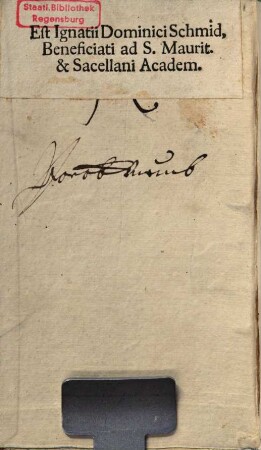 Staatl. Bibliothek
Regensburg
Est Ignatii Dominici Schmid,
Beneficiati ad S. Maurit.
& Sacellani Academ.